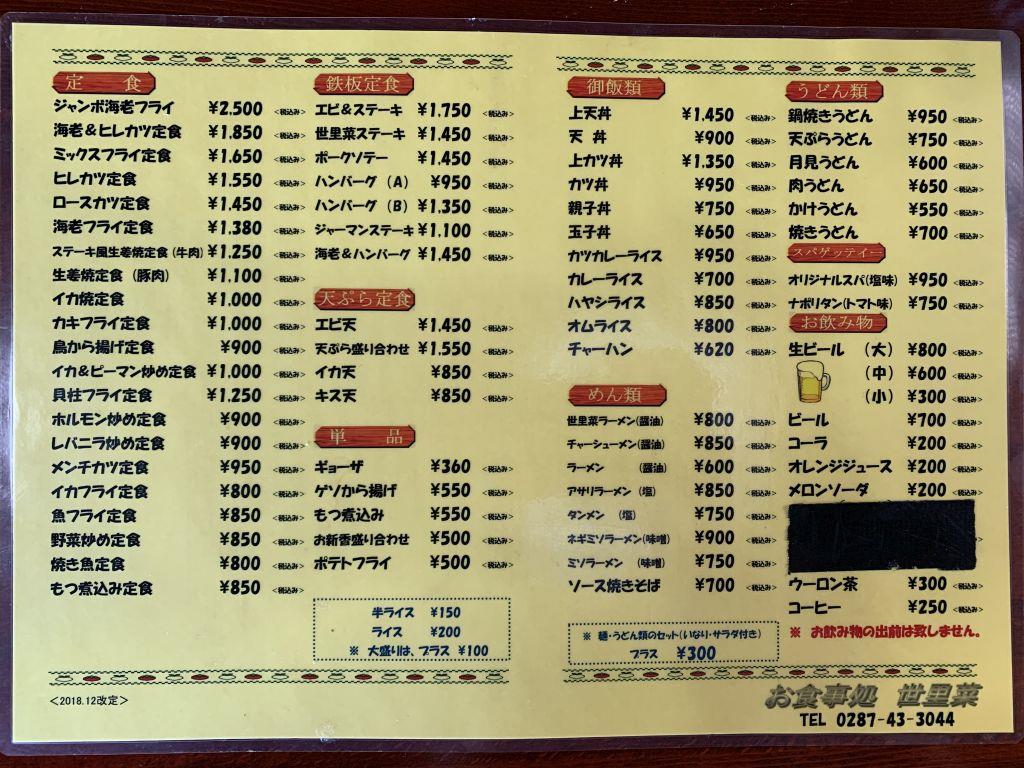 定　食
ジャンボ海老フライ ¥2.500 <税込み>
海老&ヒレカツ定食 ¥1.850 <税込み>
ミックスフライ定食 ¥1.650 <税込み>
ヒレカツ定食 ¥1.550 <税込み>
ロースカツ定食 ¥1.450 <税込み>
海老フライ定食 ¥1.380 <税込み>
ステーキ風生姜焼定食(牛肉) ¥1.250 <税込み>
生姜焼定食（豚肉） ¥1.100 <税込み>
イカ焼定食 ¥1.000 <税込み>
カキフライ定食 ¥1.000 <税込み>
鳥から揚げ定食 ¥900 <税込み>
イカ&ピーマン炒め定食 ¥1.000 <税込み>
貝柱フライ定食 ¥1.250 <税込み>
ホルモン炒め定食 ¥900 <税込み>
レバニラ炒め定食 ¥900 <税込み>
メンチカツ定食 ¥950 <税込み>
イカフライ定食 ¥800 <税込み>
魚フライ定食 ¥850 <税込み>
野菜炒め定食 ¥850 <税込み>
焼き魚定食 ¥800 <税込み>
もつ煮込み定食 ¥850 <税込み>
<2018.12改定>
鉄板定食
エビ&ステーキ ¥1.750 <税込み>
世里菜ステーキ ¥1.450 <税込み>
ポークソテー ¥1.450 <税込み>
ハンバーグ（A） ¥950 <税込み>
ハンバーグ（B） ¥1.350 <税込み>
ジャーマンステーキ ¥1.100 <税込み>
海老&ハンバーグ ¥1.450 <税込み>
天ぷら定食
エビ天 ¥1.450 <税込み>
天ぷら盛り合わせ ¥1.550 <税込み>
イカ天 ¥850 <税込み>
キス天 ¥850 <税込み>
単　品
ギョーザ ¥360 <税込み>
ゲソから揚げ ¥550 <税込み>
もつ煮込み ¥550 <税込み>
お新香盛り合わせ ¥500 <税込み>
ポテトフライ ¥500 <税込み>
半ライス ¥150
ライス ¥200
※ 大盛りは、プラス ¥100
御飯類
上天丼 ¥1.450 <税込み>
天 丼 ¥900 <税込み>
上カツ丼 ¥1.350 <税込み>
カツ丼 ¥950 <税込み>
親子丼 ¥750 <税込み>
玉子丼 ¥650 <税込み>
カツカレーライス ¥950 <税込み>
カレーライス ¥700 <税込み>
ハヤシライス ¥850 <税込み>
オムライス ¥800 <税込み>
チャーハン ¥620 <税込み>
めん類
世里菜ラーメン(醤油) ¥800 <税込み>
チャーシューメン(醤油) ¥850 <税込み>
ラーメン (醤油) ¥600 <税込み>
アサリラーメン（塩） ¥850 <税込み>
タンメン （塩） ¥750 <税込み>
ネギミソラーメン(味噌) ¥900 <税込み>
ミソラーメン (味噌) ¥750 <税込み>
ソース焼きそば ¥700 <税込み>
※ 麺・うどん類のセット(いなり・サラダ付き)
プラス ¥300
うどん類
鍋焼きうどん ¥950 <税込み>
天ぷらうどん ¥750 <税込み>
月見うどん ¥600 <税込み>
肉うどん ¥650 <税込み>
かけうどん ¥550 <税込み>
焼きうどん ¥700 <税込み>
スパゲッテイー
オリジナルスパ(塩味) ¥950 <税込み>
ナポリタン(トマト味) ¥750 <税込み>
お飲み物
生ビール （大） ¥800 <税込み>
（中） ¥600 <税込み>
（小） ¥300 <税込み>
ビール ¥700 <税込み>
コーラ ¥200 <税込み>
オレンジジュース ¥200 <税込み>
メロンソーダ ¥200 <税込み>
ウーロン茶 ¥300 <税込み>
コーヒー ¥250 <税込み>
※ お飲み物の出前は致しません。
お食事処 世里菜
TEL 0287-43-3044